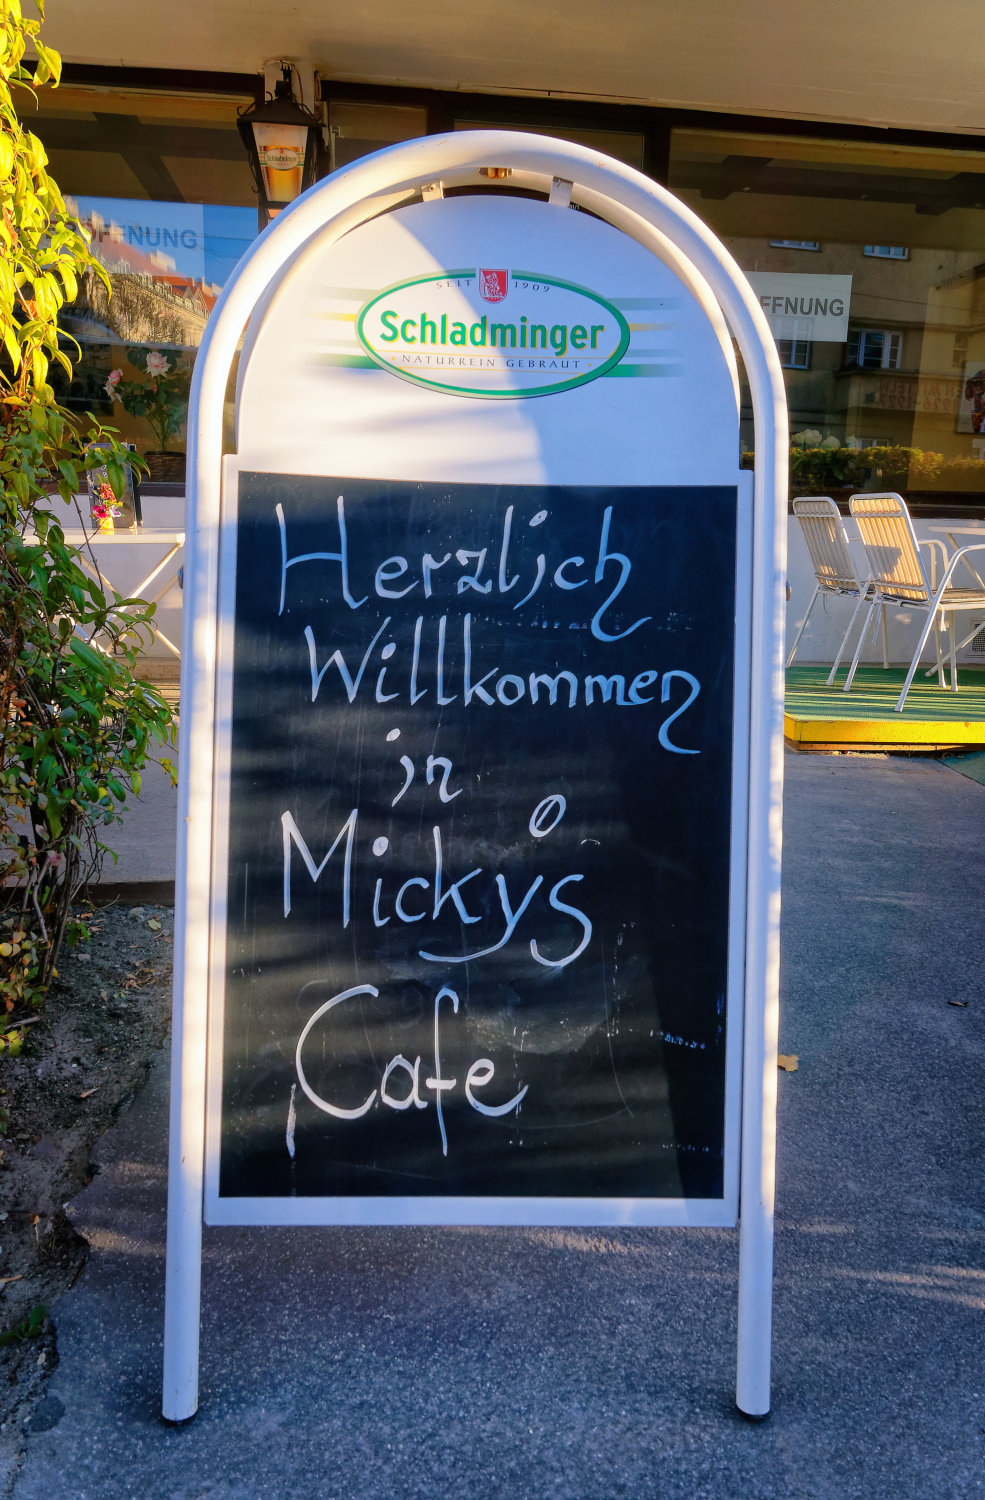 Schladminger
ÖFFNUNG
FFNUNG
SEIT 1909
Schladminger
NATURREIN GEBRAUT
Herzlich
Willkommen
in
Micky's
Cafe